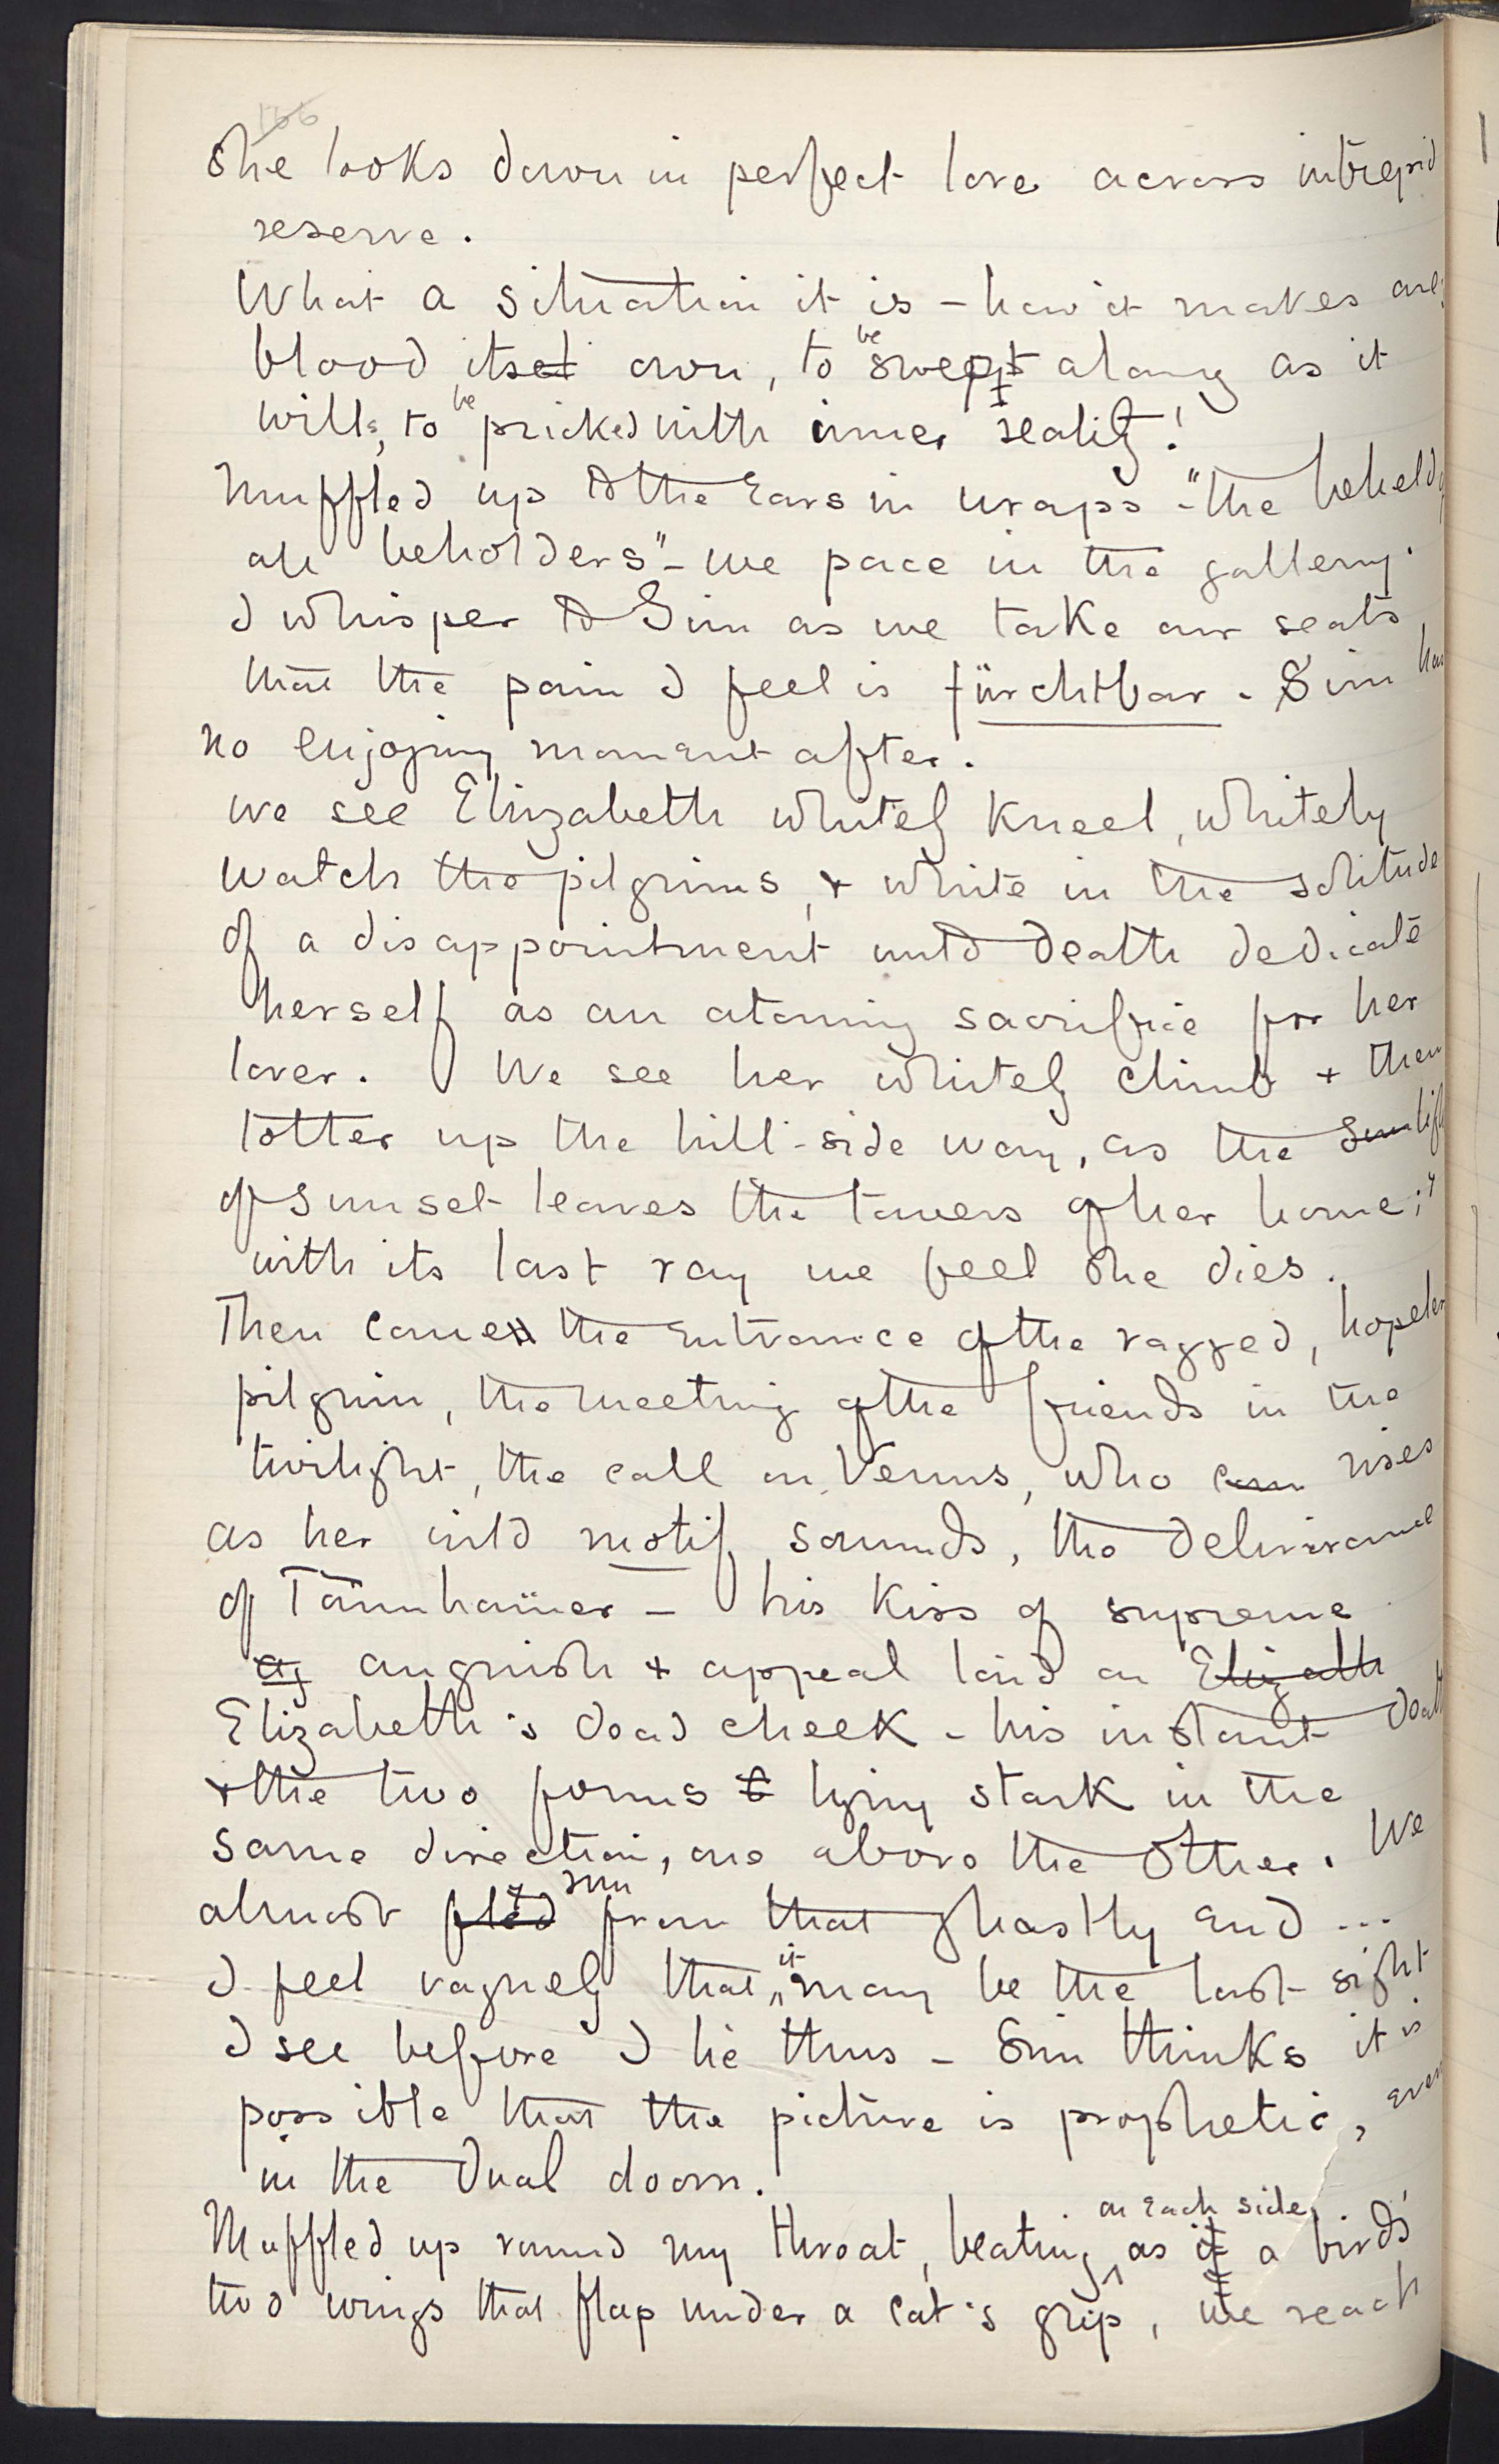 166
She looks down in perfect love across intrepid
reserve.
What a situation it is – how it makes one's
blood itself own, to be swept along as it
wills, to be pricked with inner reality!
Muffled up to the Ears in wraps – "the beheld of
all beholders" – we pace in the gallery.
I whisper to Sim as we take our seats,
that the pain I feel is fürchtbar. Sim has
no enjoying moment after.
We see Elizabeth whitely kneel, whitely
watch the pilgrims, & white in the solitude
of a disappointment unto death dedicate
herself as an atoning sacrifice for her
lover. We see her whitely climb & then
totter up the hill-side way, as the sunlight
of sunset leaves the towers of her home;
with its last ray we feel she dies.
Then comes the Entrance of the ragged, hopeless
pilgrim, the meeting of the friends in the
twilight, the call on Venus, who com rises
as her wild motif sounds, the deliverance
of Tannhaüser – his kiss of supreme
ag anguish & appeal laid on Elizath
Elizabeth's dead cheek – his instant death
& the two forms lying stark in the
same direction, one above the other. We
almost fled run from that ghastly End ...
I feel vaguely that it may be the last sight
I see before I lie thus – Sim thinks it is
possible that the picture is prophetic, even
in the Dual doom.
Muffled up round my throat, beating on Each side, as if a bird's
two wings that flap under a cat's grip, we reach